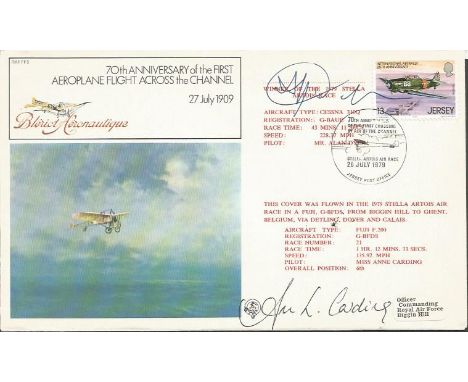 70th ANNIVERSARY of the FIRST
AEROPLANE FLIGHT ACROSS the CHANNEL
27 July 1909
Blériot Aéronautique
WINNER OF THE 1979 STELLA
ARTOIS RACE
AIRCRAFT TYPE: CESSNA
REGISTRATION:
RACE TIME: 43 MINS.
SPEED:
PILOT: MR. ALAN
13
JERSEY
STELLA ARTOIS AIR RACE
26 JULY 1979
JERSEY POST OFFICE
THIS COVER WAS FLOWN IN THE 1979 STELLA ARTOIS AIR
RACE IN A FUJI, G-BFDS, FROM BIGGIN HILL TO GHENT,
BELGIUM, VIA DETLING, DOVER AND CALAIS.
AIRCRAFT TYPE: FUJI F.200
REGISTRATION: G-BFDS
RACE NUMBER: 21
RACE TIME: 1 HR, 12 MINS, 11 SECS.
SPEED: 135.97 MPH
PILOT: MISS ANNE CARDING
OVERALL POSITION: 6th
L. Carding
Officer
Commanding
Royal Air Force
Biggin Hill